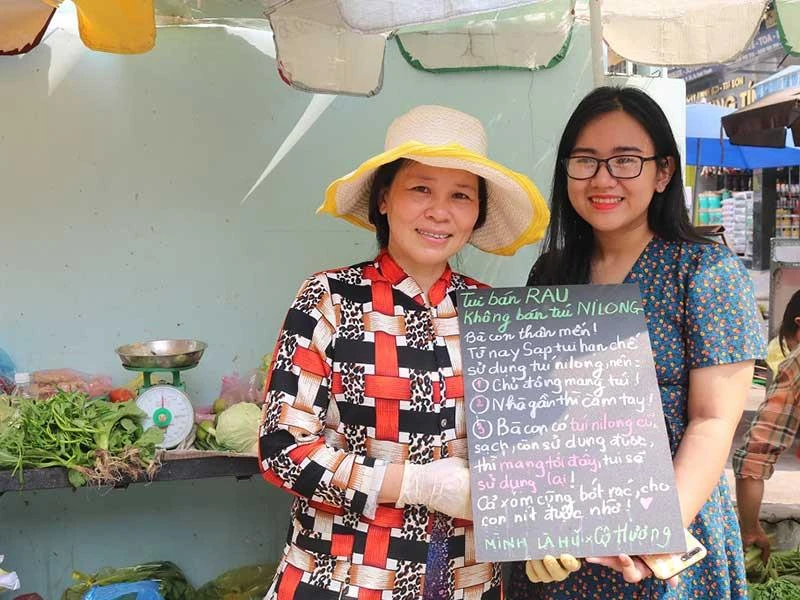 Tui bán RAU
Không bán túi NILONG
Bà con thân mến!
Từ nay Sạp tui hạn chế
sử dụng túi nilong, nên:
① Chủ động mang túi!
② Nhà gần thì cầm tay!
③ Bà con có túi nilong cũ,
sạch, còn sử dụng được,
thì mang tới đây, tui sẽ
sử dụng lại!
Cả xóm cùng bớt rác, cho
con nít được nhờ!
MÌNH LÀ HŨ × Cô Hương